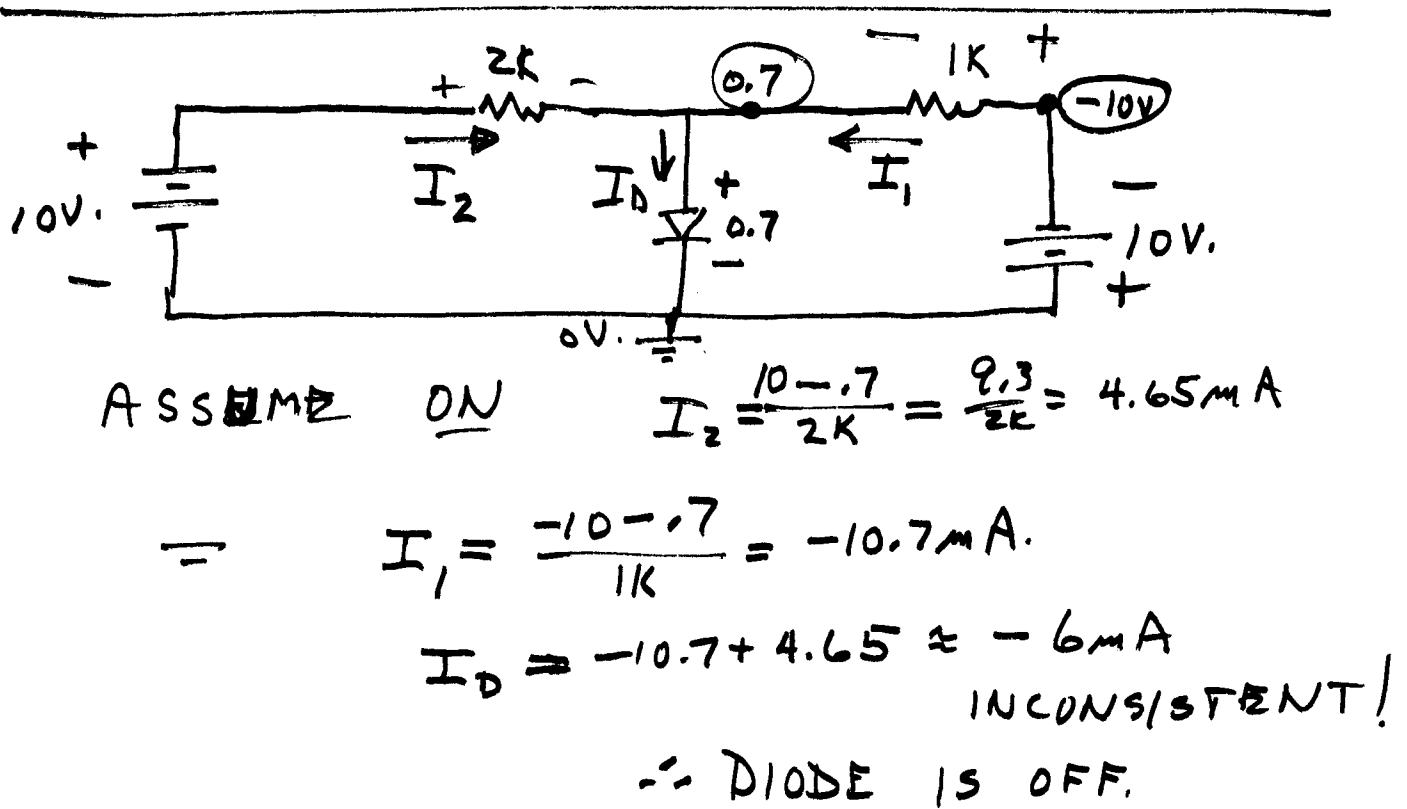 + 2K - 0.7 - 1K +
-10V
+ 10V. -
I2 ID + 0.7 - I1
- 10V. +
0V.
ASSUME ON I2 = 10-.7/2K = 9.3/2K = 4.65mA
I1 = -10-.7/1K = -10.7mA.
ID = -10.7+4.65 ≈ -6mA
INCONSISTENT!
∴ DIODE IS OFF.